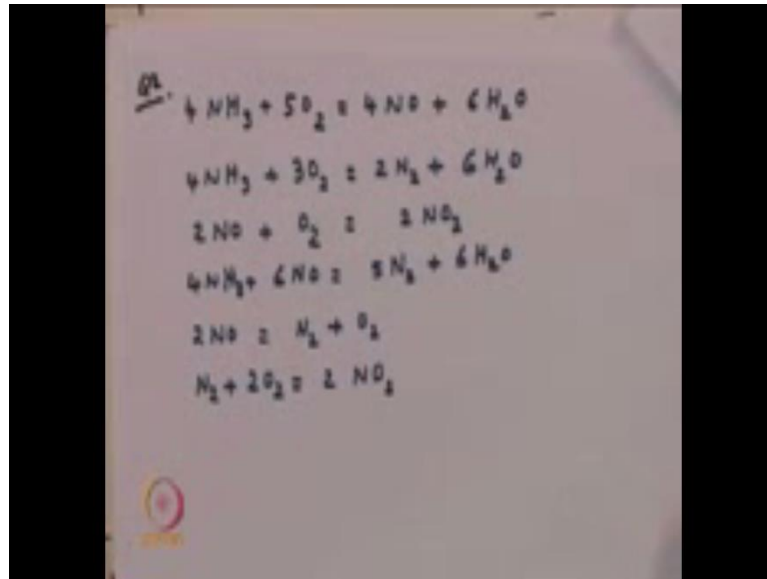 Q2.
4NH₃ + 5O₂ = 4NO + 6H₂O
4NH₃ + 3O₂ = 2N₂ + 6H₂O
2NO + O₂ = 2NO₂
4NH₃ + 6NO = 5N₂ + 6H₂O
2NO = N₂ + O₂
N₂ + 2O₂ = 2 NO₂